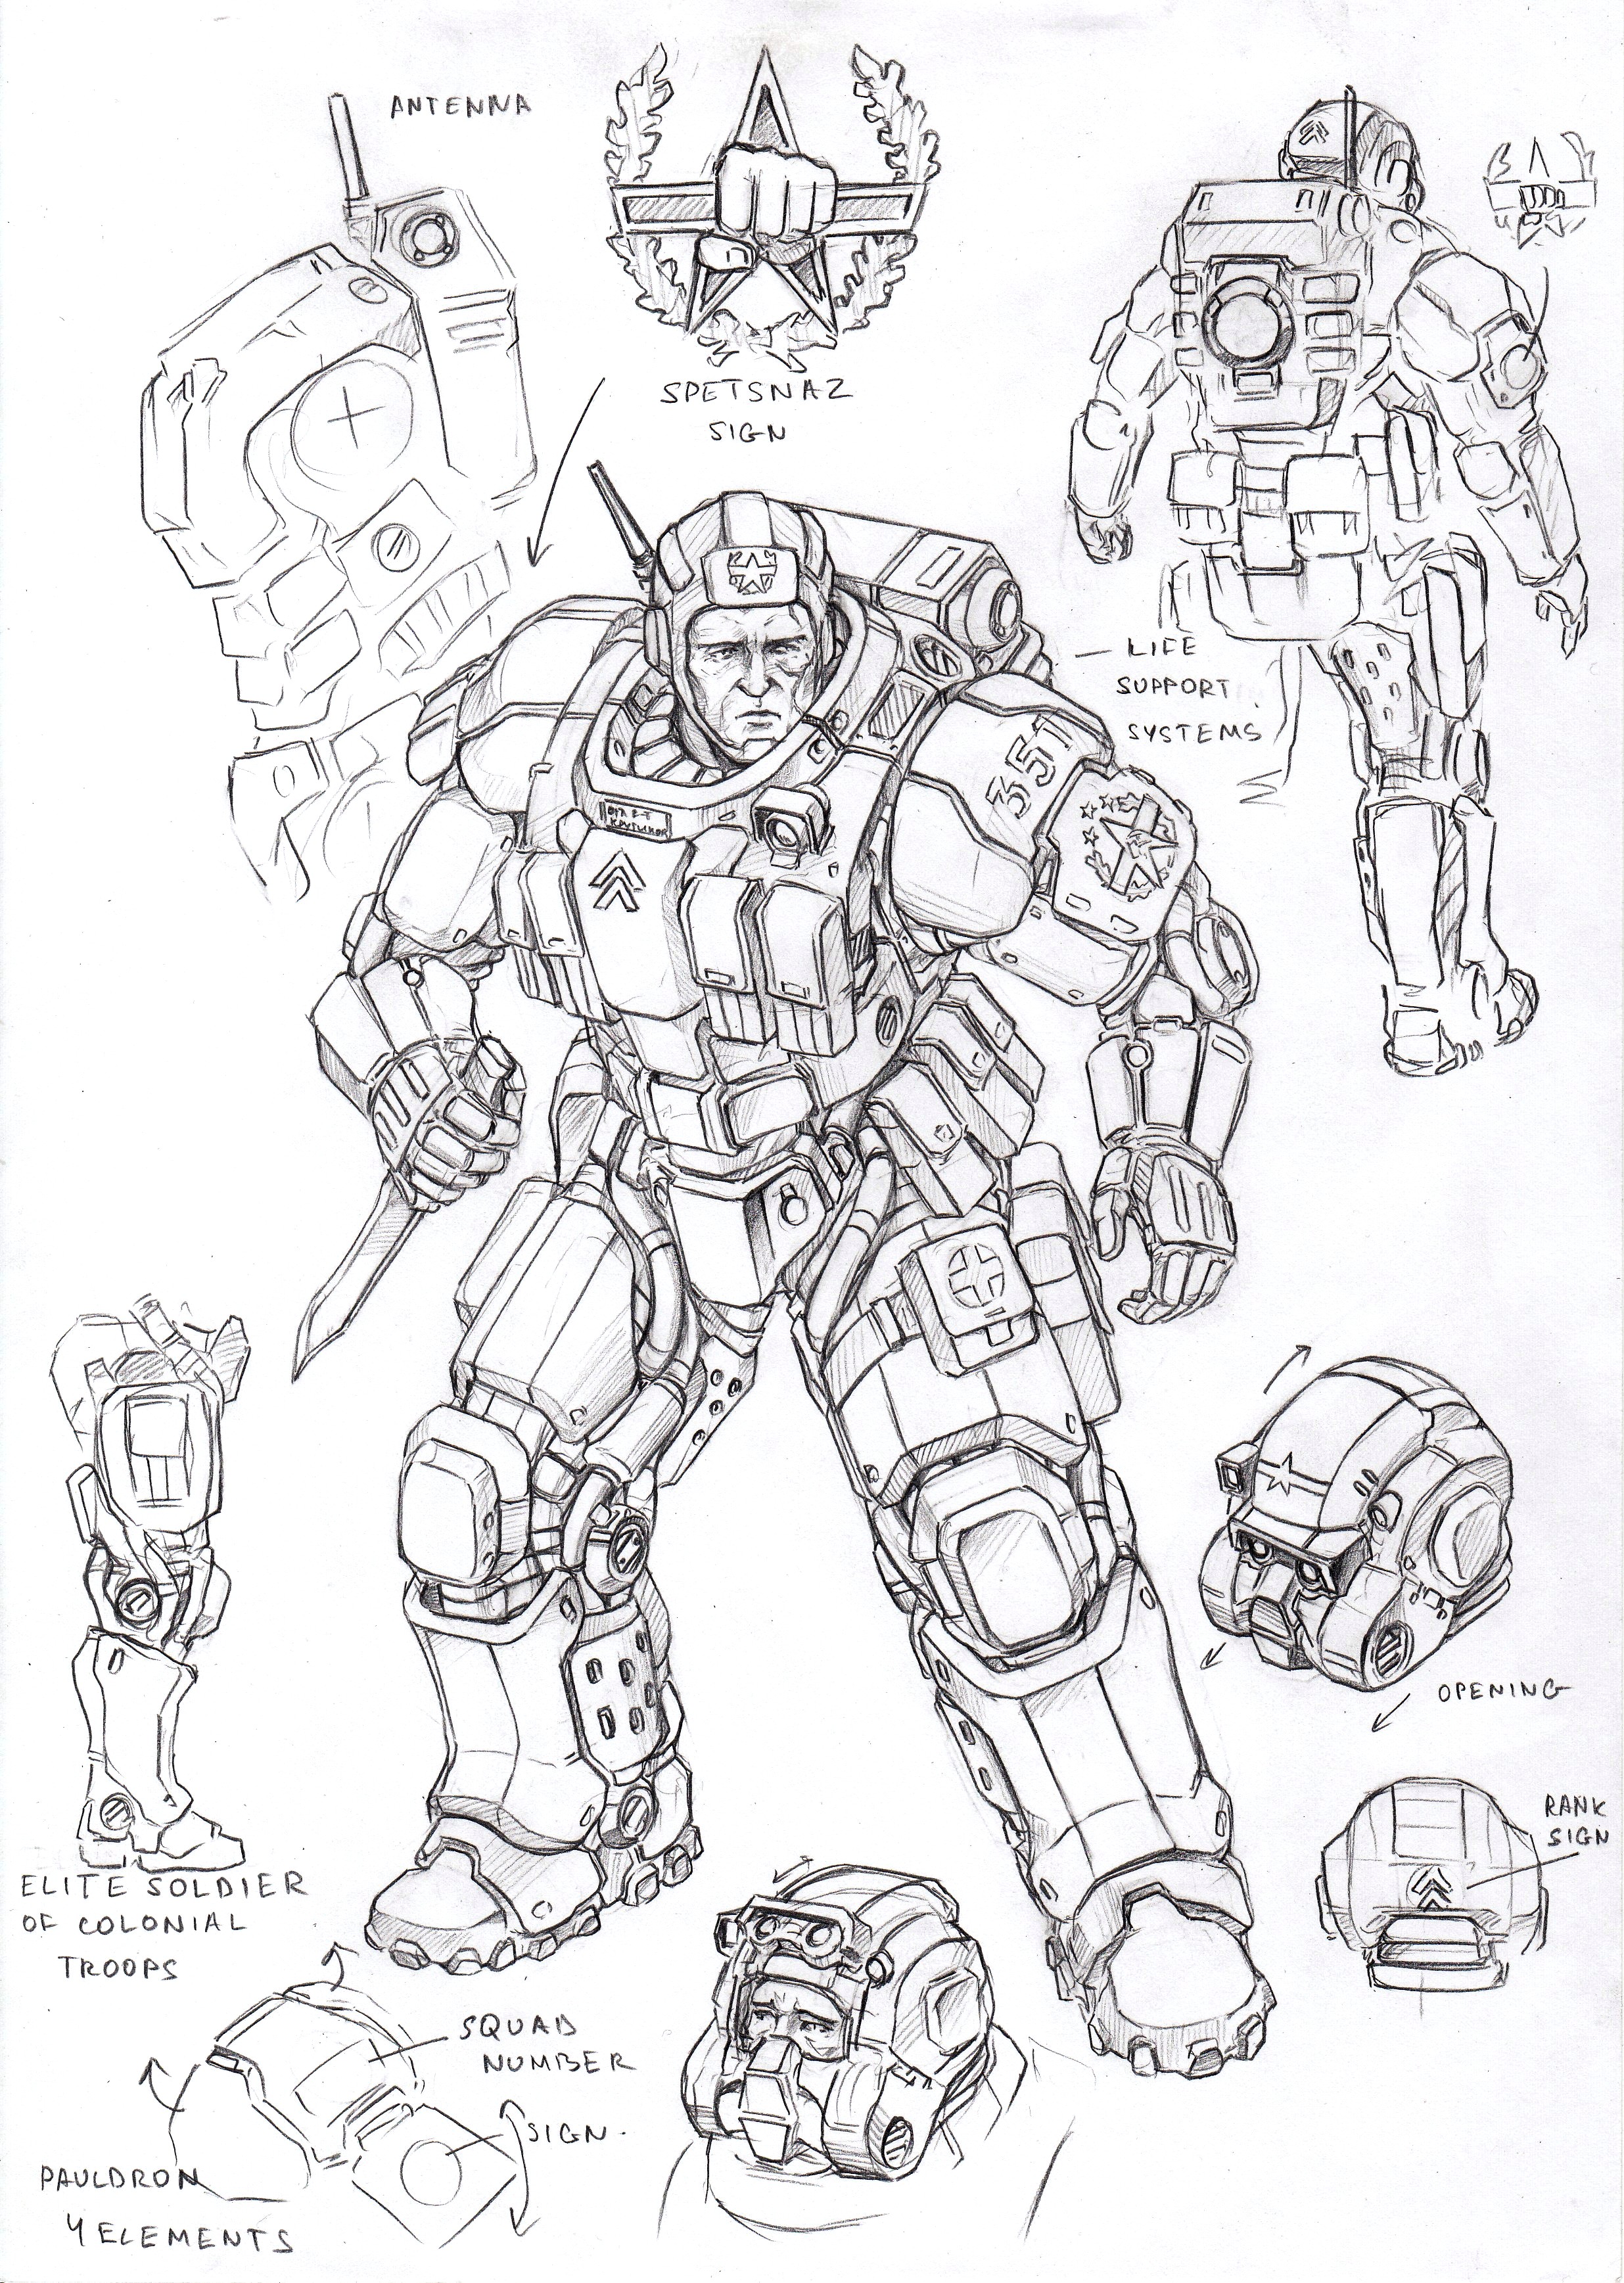 ANTENNA
SPETSNAZ
SIGN
LIFE
SUPPORT
SYSTEMS
351
КРУТИКОВ
OPENING
RANK
SIGN
ELITE SOLDIER
OF COLONIAL
TROOPS
SQUAD
NUMBER
SIGN.
PAULDRON
4 ELEMENTS